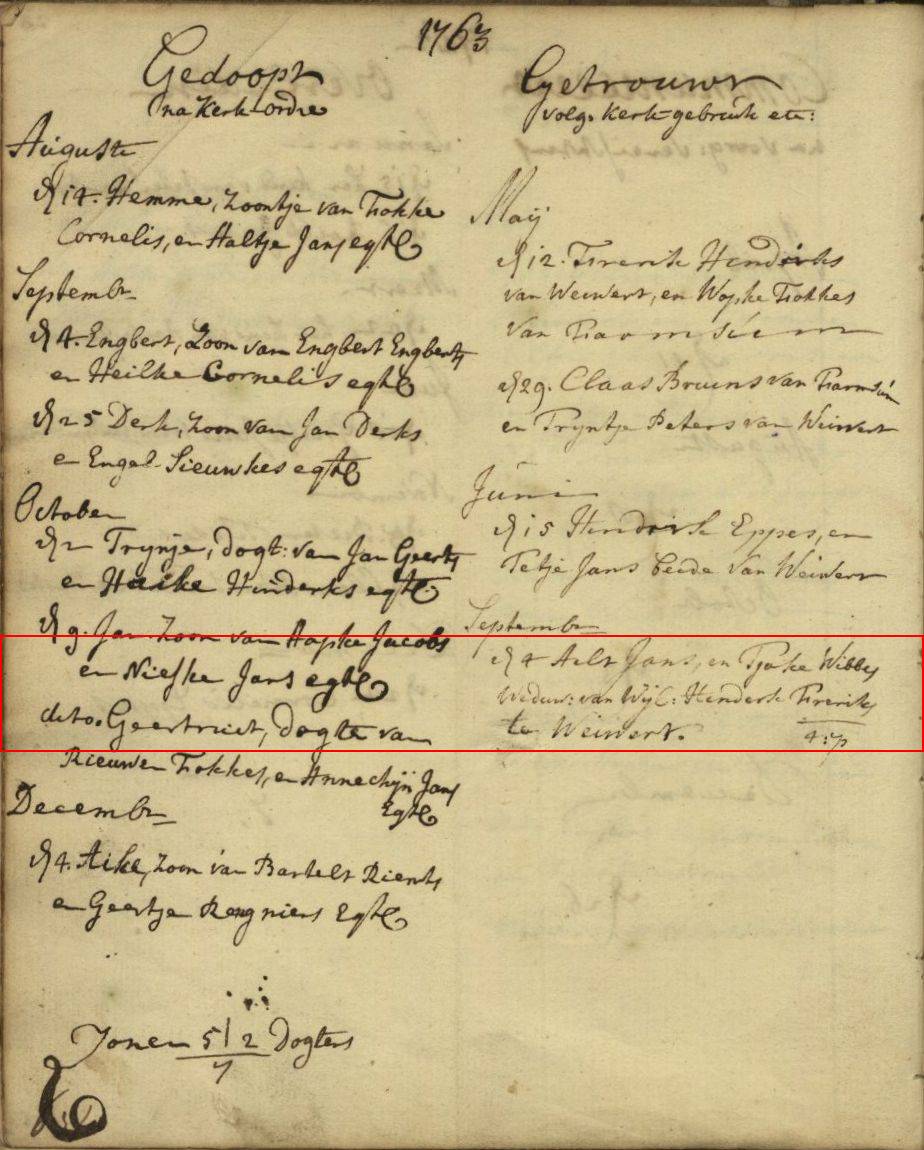 1763
Gedoopt
na Kerk-ordre
Auguste
d 14. Hemme, zoontje van Fokke
Cornelis, en Haltje Jans egtl
Septembr
d 4. Engbert, Zoon van Engbert Engberts
en Heilke Cornelis egtl
d 25 Derk, zoon van Jan Derks
en Engel Sieuwkes egtl
October
d 2 Trynje, dogt: van Jan Geerts
en Haike Hinderks egtl
d 9. Jan Zoon van Hapke Jacobs
en Nieske Jans egtl
dito. Geertruit, Dogte van
Rieuwen Fokkes, en Annechijn Jans
Egtl
Decembr
d 4. Aike, zoon van Bartelt Rients
en Geertje Rengniers Egtl
Zonen 5 | 2 Dogters
7
Getrouwt
volg. Kerk-gebruik etc:
Maij
d 12. Frerik Hendriks
van Weiwert, en Wopke Fokkes
van Farmsum
d 29. Claas Bruins van Farmsum
en Tryntje Peters van Weiwert
Juni
d 15 Hindrik Eppes, en
Tetje Jans beide van Weiwert
Septembr
d 4 Aelt Jans, en Tjake Wibbes
Weduw: van Wijl: Henderk Freriks
te Weiwert.
4:p